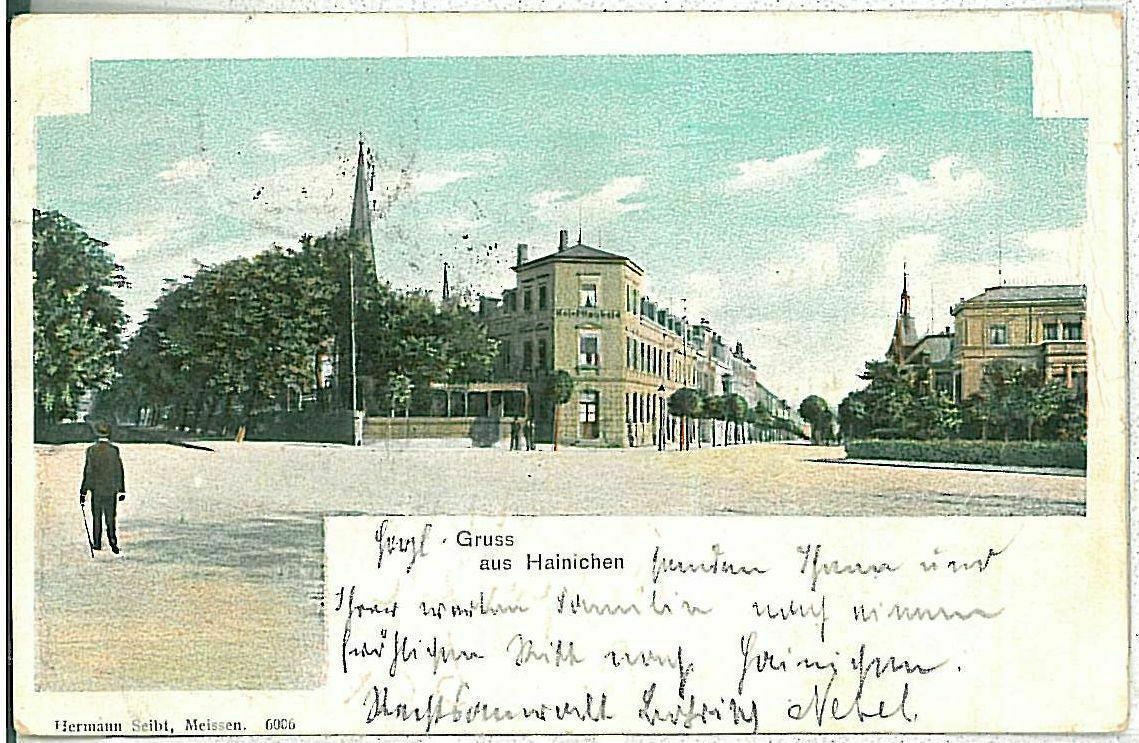 Herzl. Gruss
aus Hainichen senden Ihnen und
Ihrer werten Familie nach einem
fröhlichen Ritt nach Hainichen.
Rechtsanwalt Nebel.
Hermann Seibt, Meissen. 6006